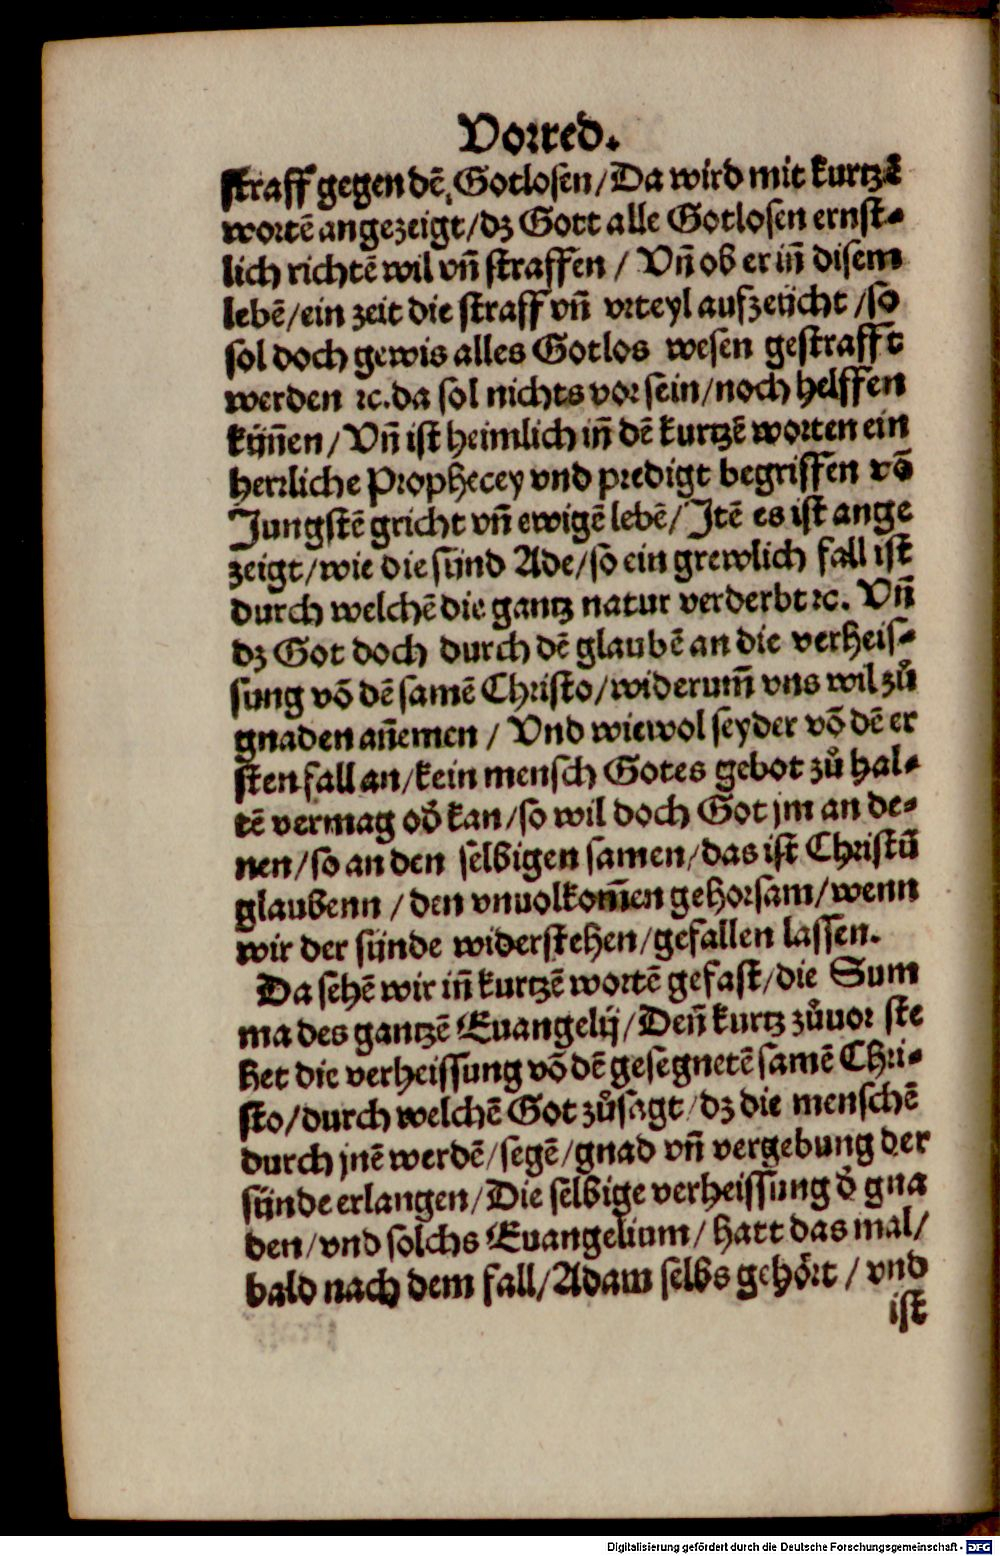 Vorred.
straff gegen dē Gotlosen/Da wird mit kurtzē
wortē angezeigt/dz Gott alle Gotlosen ernst-
lich richtē wil vñ straffen / Vñ ob er iñ disem
lebē/ein zeit die straff vñ vrteyl aufzeücht /so
sol doch gewis alles Gotlos wesen gestrafft
werden ꝛc.da sol nichts vor sein/noch helffen
kün̄en/Vñ ist heimlich iñ dē kurtzē worten ein
herrliche Prophecey vnd predigt begriffen vō
Jungstē gricht vñ ewigē lebē/Jtē es ist ange
zeigt/wie die sünd Ade/so ein grewlich fall ist
durch welchē die gantz natur verderbt ꝛc. Vñ
dz Got doch durch dē glaubē an die verheis-
sung vō dē samē Christo/widerum̄ vns wil zů
gnaden an̄emen / Vnd wiewol seyder vō dē er
sten fall an/kein mensch Gotes gebot zů hal-
tē vermag od̕ kan/so wil doch Got jm an de-
nen/so an den selbigen samen/das ist Christū
glaubenn / den vnuolkom̄en gehorsam/wenn
wir der sünde widerstehen/gefallen lassen.
Da sehē wir iñ kurtzē wortē gefast/die Sum
ma des gantzē Euangelij/Deñ kurtz zůuor ste
het die verheissung vō dē gesegnetē samē Chri-
sto/durch welchē Got zůsagt/dz die menschē
durch jnē werdē/segē/gnad vñ vergebung der
sünde erlangen/Die selbige verheissung d̕ gna
den/vnd solchs Euangelium/hatt das mal/
bald nach dem fall/Adam selbs gehört / vnd
ist
Digitalisierung gefördert durch die Deutsche Forschungsgemeinschaft - DFG